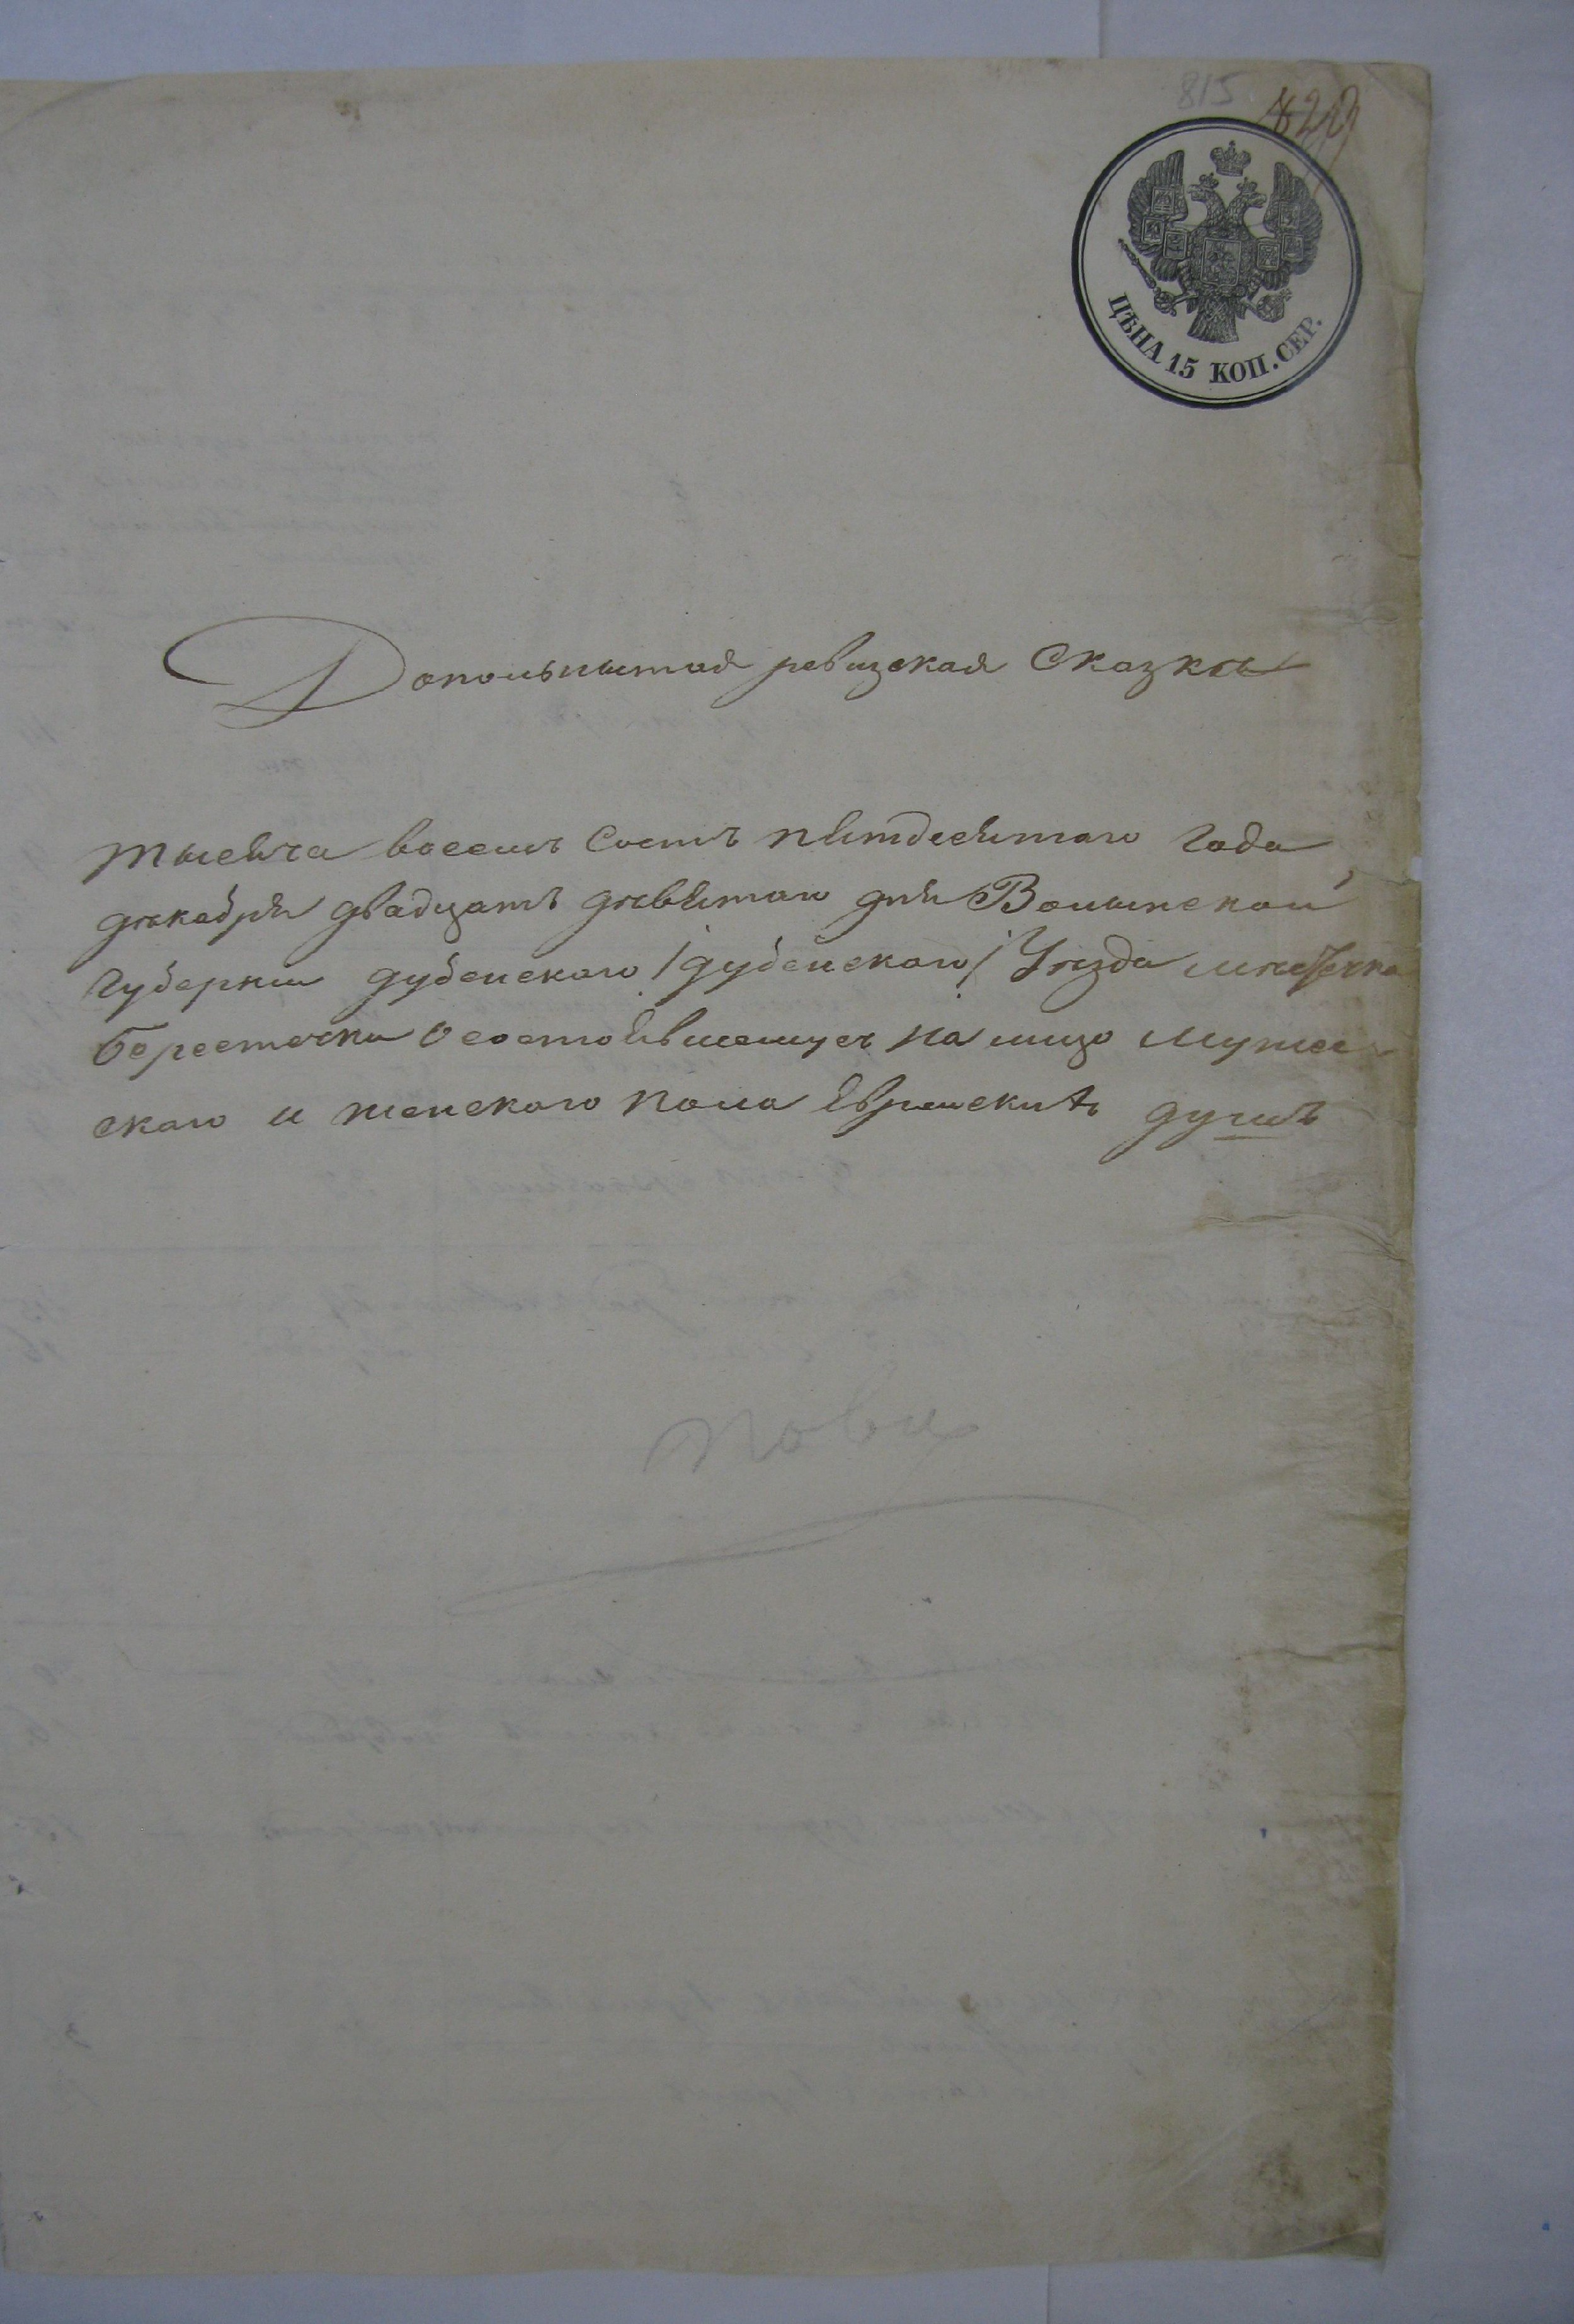 815
829
ЦѢНА 15 КОП. СЕР.
Допольнытая ревизская Сказка
тысеча восемъ Сотъ пятдесятаго Года
дѣкабря двадцать дѣвятаго дня Волынской
Губернии дубенскаго /дубенскаго/ Уѣзда мѣстечка
берестечка о состоявшемуся на лицо мужес
скаго и женскаго пола Еврейскихъ душъ